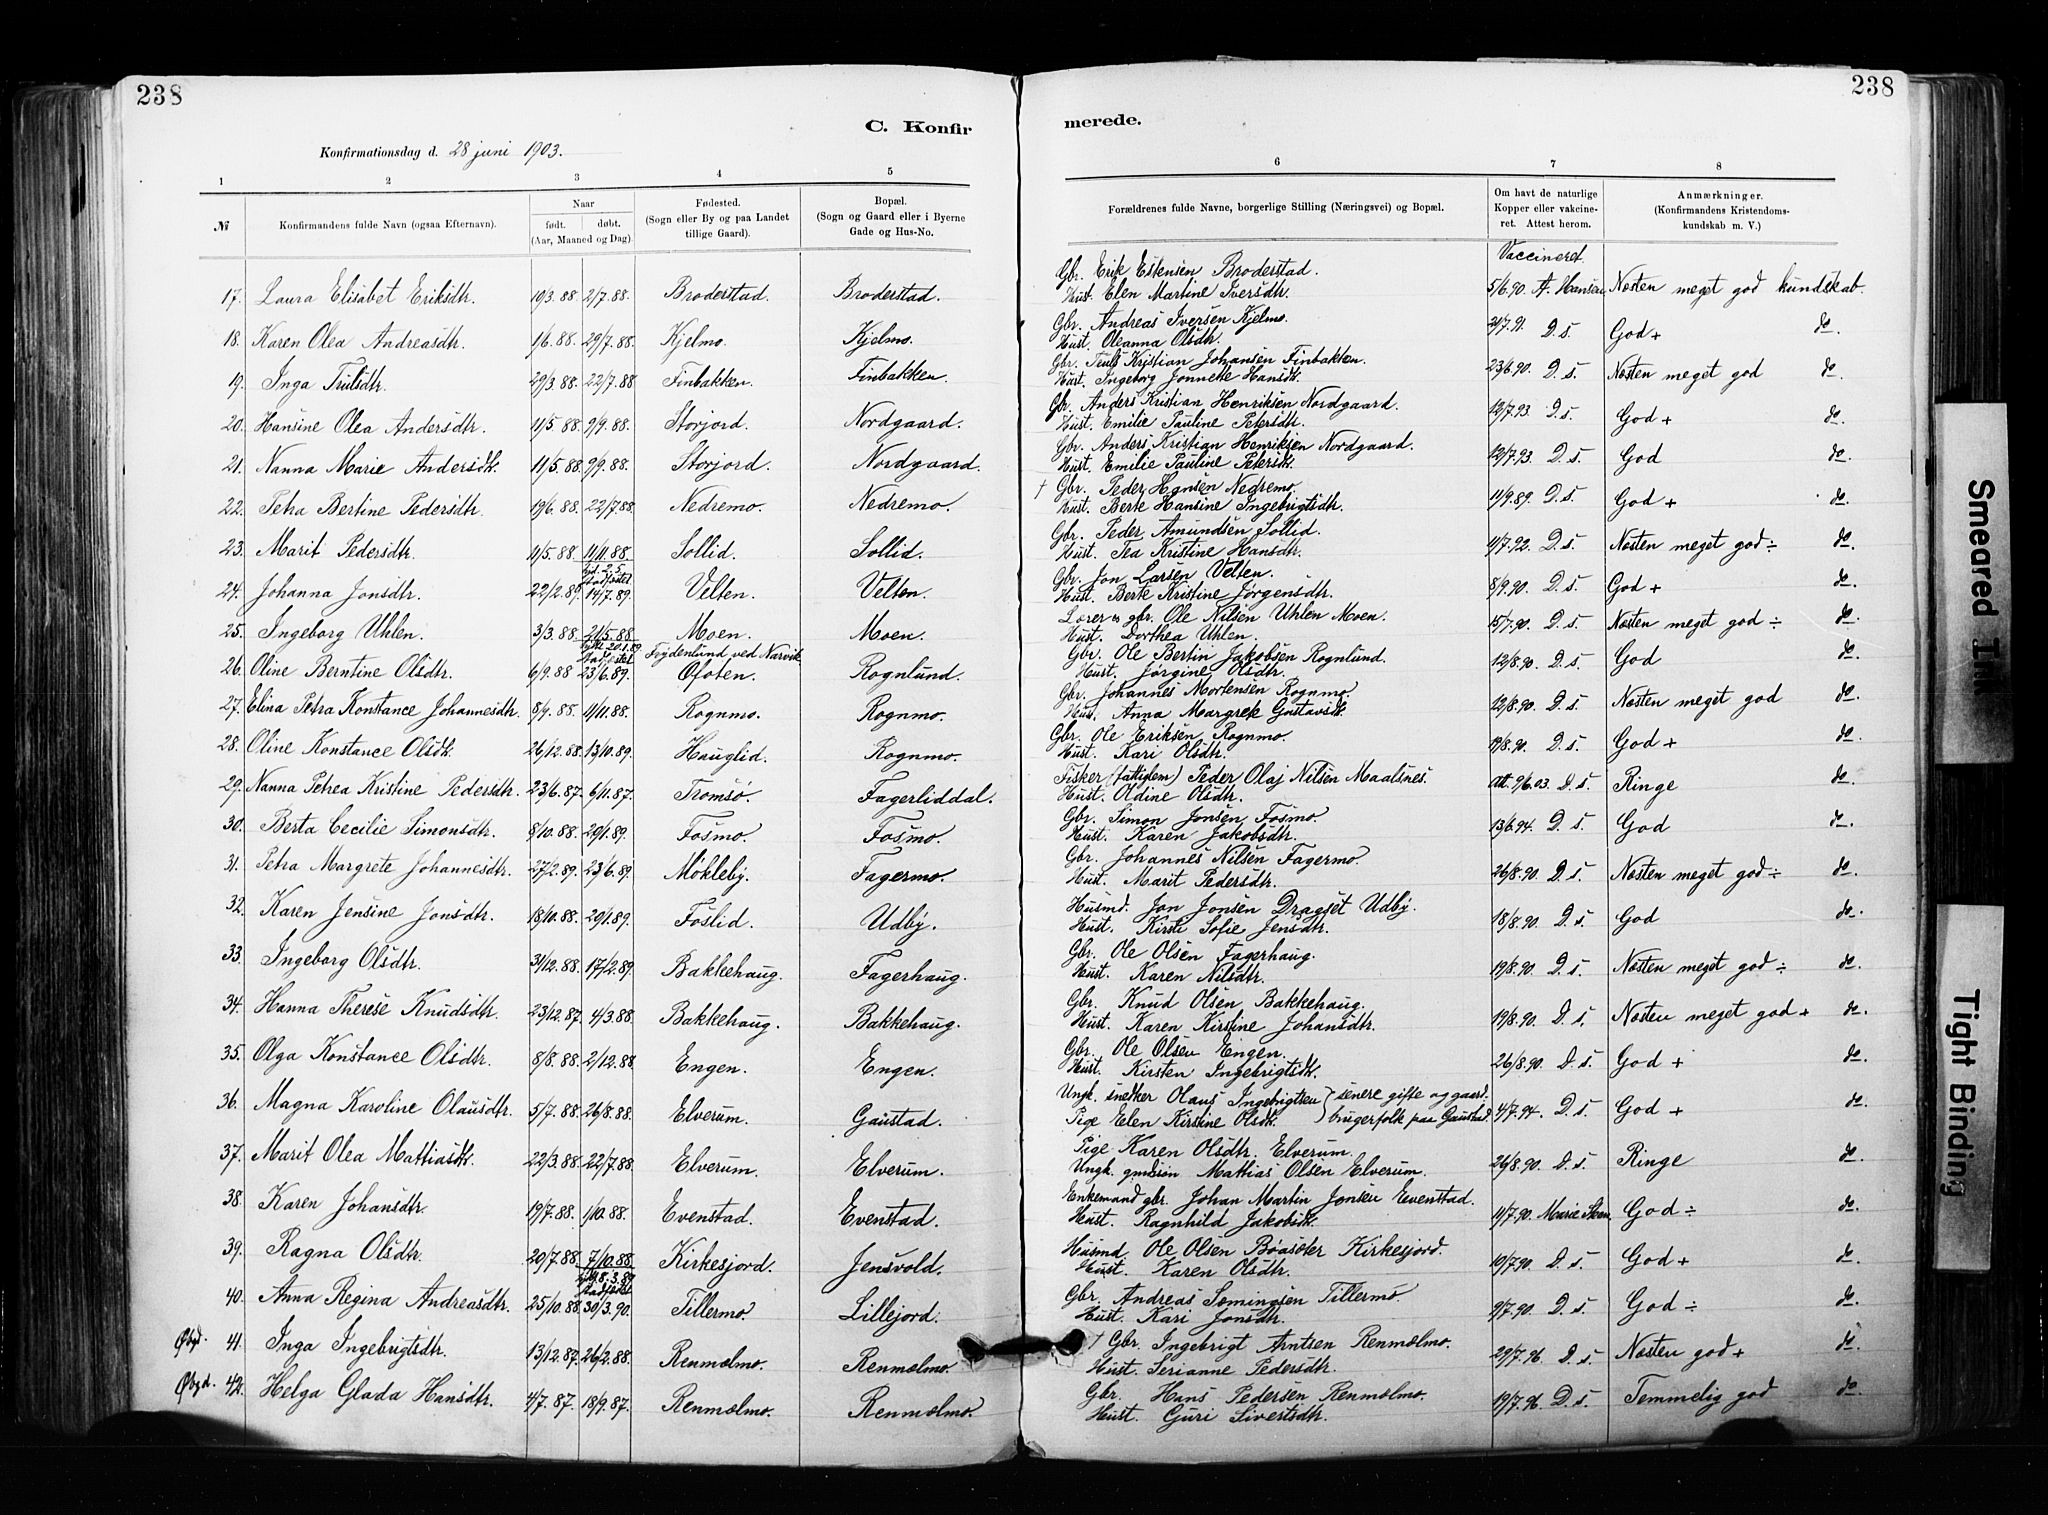 238
238
C. Konfir
merede.
Konfirmationsdag d. 28 juni 1903.
1 2 3 4 5 6 7 8
№ Konfirmandens fulde Navn (ogsaa Efternavn). Naar født. døbt. (Aar, Maaned og Dag). Fødested. (Sogn eller By og paa Landet tillige Gaard). Bopæl. (Sogn og Gaard eller i Byerne Gade og Hus-No. Forældrenes fulde Navne, borgerlige Stilling (Næringsvei) og Bopæl. Om havt de naturlige Kopper eller vakcineret. Attest herom. Anmærkninger. (Konfirmandens Kristendomskundskab m. V.)
Vaccineret
17. Laura Elisabet Eriksdtr. 10/3.88. 2/7.88. Broderstad. Broderstad. Gbr. Erik Estensen Broderstad. Hust. Elen Martine Iversdtr. 5/6.90. A. Hansen Næsten meget god kundskab.
18. Karen Olea Andreasdtr. 1/6.88. 29/7.88. Kjelmo. Kjelmo. Gbr. Andreas Iversen Kjelmo. Hust. Oleanna Olsdtr. 21/7.91. D. s. God + do.
19. Inga Trulsdtr. 29/3.88. 22/7.88 Finbakken. Finbakken. Gbr. Truls Kristian Johansen Finbakken. Hust. Ingeborg Jonnette Hansdtr. 23/6.90. D. s. Næsten meget god do.
20. Hansine Olea Andersdtr. 11/5.88. 9/9.88. Storjord. Nordgaard. Gbr. Anders Kristian Henriksen Nordgaard. Hust. Emilie Pauline Petersdtr. 12/7.93. D. s. God + do.
21. Nanna Marie Andersdtr. 11/5.88. 9/9.88. Storjord. Nordgaard. Gbr. Anders Kristian Henriksen Nordgaard. Hust. Emilie Pauline Petersdtr. 12/7.93. D. s. God do.
22. Petra Bertine Pedersdtr. 19/6.88. 22/7.88. Nedremo. Nedremo. † Gbr. Peder Hansen Nedremo. Hust. Berte Hansine Ingebrigtsdtr. 11/9.89. D. s. God + do.
23. Marit Pedersdtr. 11/5.88. 11/11.88. Sollid. Sollid. Gbr. Peder Amundsen Sollid. Hust. Tea Kristine Hansdtr. 4/7.92. D. s. Næsten meget god ÷ do.
24. Johanna Jonsdtr. 22/2.89. stadfæstet 14/7.89. Velten. Velten. Gbr. Jon Larsen Velten. Hust. Berte Kristine Jørgensdtr. 8/9.90. D. s. God + do.
25. Ingeborg Uhlen. 3/3.88. 21/5.88. Moen. Moen. Lærer og gbr. Ole Nilsen Uhlen Moen. Hust. Dorthea Uhlen. 15/7.90. D. s. Næsten meget god ÷ do.
26. Oline Berntine Olsdtr. 6/9.88 stadfæstet 23/6.89. Frydenlund ved Narvik Ofoten. Rognlund. Gbr. Ole Bertin Jakobsen Rognlund. Hust. Jørgine Olsdtr. 12/8.90. D. s. God do.
27. Elina Petra Konstance Johannesdtr. 8/9.88. 11/11.88. Rognmo. Rognmo. Gbr. Johannes Mortensen Rognmo. Hust. Anna Margrete Gustavsdtr. 12/8.90. D. s. Næsten meget god do.
28. Oline Konstance Olsdtr. 26/12.88. 13/10.89. Hauglid. Rognmo. Gbr. Ole Eriksen Rognmo. Hust. Kari Olsdtr. 19/8.90. D. s. God + do.
29. Nanna Petrea Kristine Pedersdtr. 23/6.87. 6/11.87. Tromsø. Fagerliddal. Fisker (fattiglem) Peder Olaj Nilsen Maalsnes. Hust. Oldine Olsdtr. Att. 9/6.03. D. s. Ringe do.
30. Berta Cecilie Simonsdtr. 8/10.88. 20/1.89. Fosmo. Fosmo. Gbr. Simon Jonsen Fosmo Hust. Karen Jakobsdtr. 13/6.94. D. s. God do.
31. Petra Margrete Johannesdtr. 27/2.89. 23/6.89. Møkleby. Fagermo. Gbr. Johannes Nilsen Fagermo. Hust. Marit Pedersdtr. 26/8.90. D. s. Næsten meget god ÷ do.
32. Karen Jensine Jonsdtr. 18/10.88. 20/1.89. Foslid. Udby. Husmd. Jon Jonsen Dragset Udby. Hust. Kirsti Sofie Jensdtr. 18/8.90. D. s. God do.
33. Ingeborg Olsdtr. 31/12.88. 17/2.89. Bakkehaug. Fagerhaug. Gbr. Ole Olsen Fagerhaug. Hust. Karen Nilsdtr. 19/8.90. D. s. Næsten meget god ÷ do.
34. Hanna Therese Knudsdtr. 23/12.87. 4/3.88. Bakkehaug. Bakkehaug. Gbr. Knud Olsen Bakkehaug. Hust. Karen Kirstine Johansdtr. 19/8.90. D. s. Næsten meget god + do.
35. Olga Konstance Olsdtr. 8/8.88. 2/12.88. Engen. Engen. Gbr. Ole Olsen Engen. Hust. Kirsten Ingebrigtsdtr. 26/8.90. D. s. God + do.
36. Magna Karoline Olausdtr. 5/7.88. 26/8.88. Elverum. Gaustad. Ungk. snedker Olaus Ingebrigtsen Pige Elen Kirstine Olsdtr. } senere gifte og gaardbrugerfolk paa Gaustad. 4/7.94. D. s. God + do.
37. Marit Olea Mattiasdtr. 22/3.88. 22/7.88. Elverum. Elverum. Pige Karen Olsdtr. Elverum. Ungk. gmdssøn Mattias Olsen Elverum. 26/8.90. D. s. Ringe do.
38. Karen Johansdtr. 19/7.88. 1/10.88. Evenstad. Evenstad. Enkemand gbr. Johan Martin Jonsen Evenstad. Hust. Ragnhild Jakobsdtr. 11/7.90. Marie God ÷ do.
39. Ragna Olsdtr. 20/7.88. 7/10.88. Kirkesjord. Jensvold. Husmd. Ole Olsen Bøasæter Kirkesjord. Hust. Karen Olsdtr. 10/7.90. D. s. God + do.
40. Anna Regina Andreasdtr. 25/10.88. stadfæstet 30/3.90. Tillermo. Lillejord. Gbr. Andreas Somingsen Tillermo. Hust. Kari Jonsdtr. 9/7.90. D. s. God ÷ do.
Øbgd. 41. Inga Ingebrigtsdtr. 13/12.87. 26/2.88. Renmælmo. Renmælmo. † Gbr. Ingebrigt Arntsen Renmælmo. Hust. Serianne Pedersdtr. 29/7.96. D. s. Næsten god + do.
Øbgd. 42. Helga Glada Hansdtr. 4/7.87. 18/9.87. Renmælmo. Renmælmo. Gbr. Hans Pedersen Renmælmo. Hust. Guri Sivertsdtr. 19/7.96. D. s. Temmelig god do.
Smeared Ink
Tight Binding